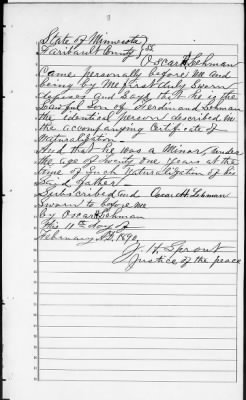 State of Minnesota
Faribault County } SS.
Oscar H Lehman
Came personally before me and
being by me first duly sworn
deposes and says that he is the
Lawful Son of Ferdinand Lehman
the identical person described in
the accompanying Certificate of
Naturalization.
And that he was a Minor, under
the age of twenty one years at the
time of Such Naturalization of his
Said father.
Subscribed and Oscar H. Lehman
Sworn to before me
by Oscar H Lehman
this 11th day of
February A.D. 1890.
J. H. Sprout
Justice of the peace